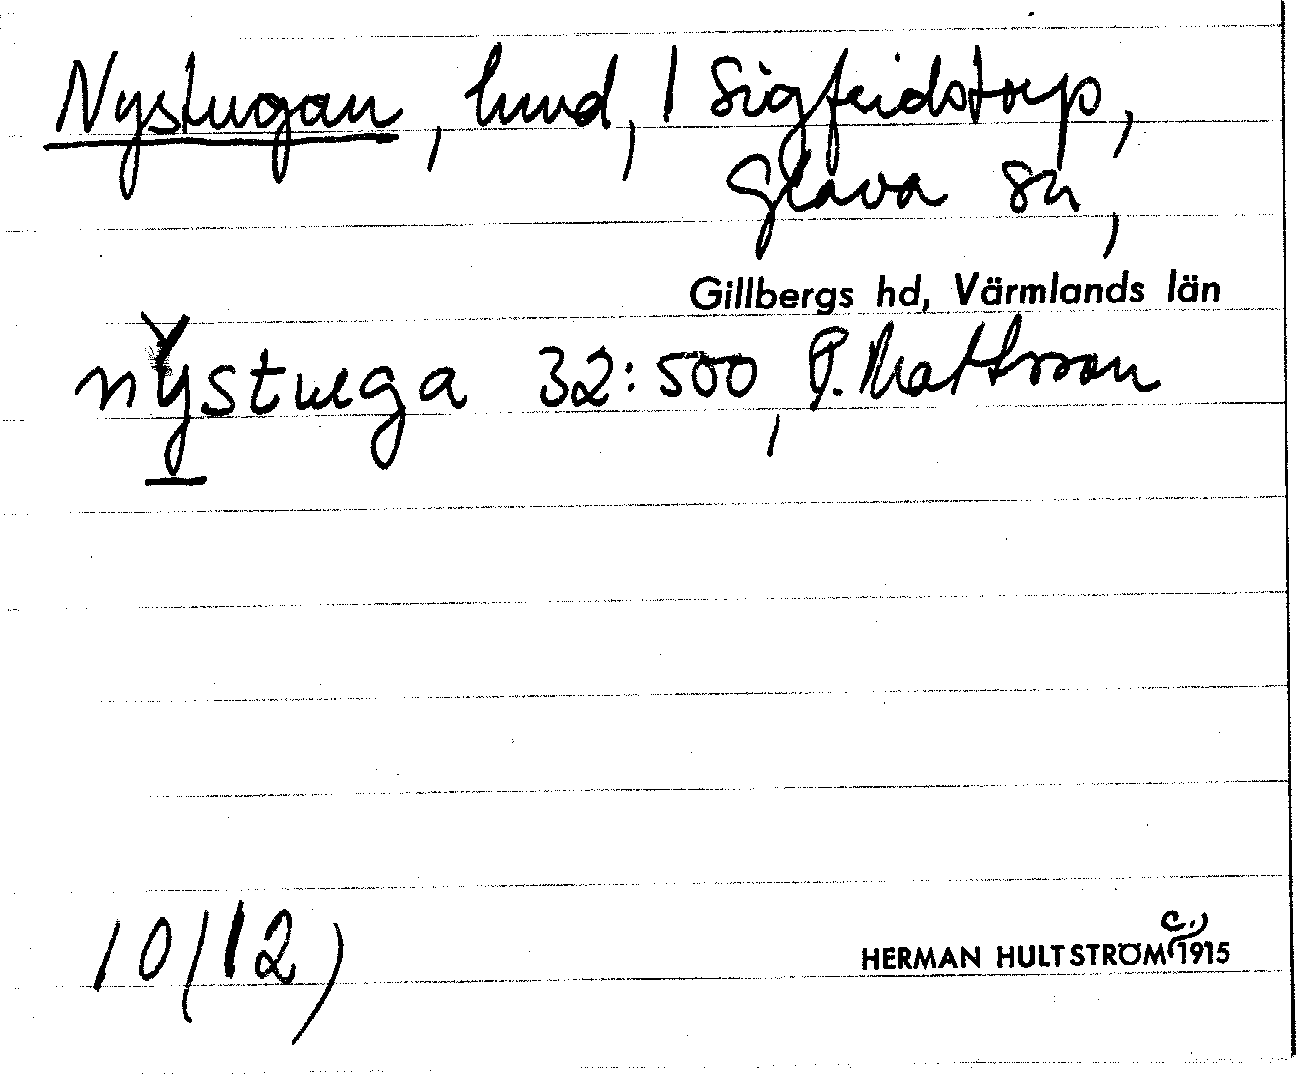 Nystugan, hmd, 1 Sigfridstorp,
Glava sn,
Gillbergs hd, Värmlands län
nystuga 32:500, P. Mattsson
10/12)
HERMAN HULTSTRÖM c.) 1915